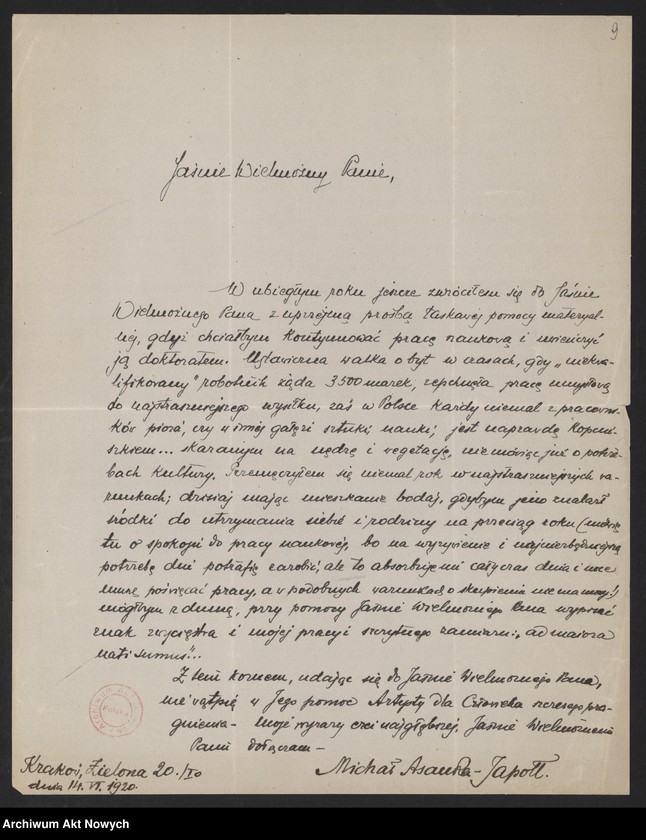 9
Jaśnie Wielmożny Panie,
W ubiegłym roku jeszcze zwróciłem się do Jaśnie
Wielmożnego Pana z uprzejmą prośbą łaskawej pomocy materyal-
nej, gdyż chciałbym kontynuować pracę naukową i uwieńczyć
ją doktoratem. Ustawiczna walka o byt w czasach, gdy „niekwa-
lifikowany" robotnik żąda 3500 marek, zepchnęła pracę umysłową
do najstraszniejszego wysiłku, zaś w Polsce każdy niemal z pracowni-
ków pióra, czy innej gałęzi sztuki, nauki, jest naprawdę kopciu-
szkiem... skazanym na nędzę i wegetację, nie mówiąc już o potrze-
bach kultury. Przemęczyłem się niemal rok w najstraszniejszych wa-
runkach; dzisiaj mając mieszkanie bodaj, gdybym jeno znalazł
środki do utrzymania siebie i rodziny na przeciąg roku (mówię
tu o spokoju do pracy naukowej, bo na wyżywienie i najniezbędniejszą
potrzebę dni potrafię zarobić, ale to absorbuje mi cały czas dnia i noce
muszę poświęcać pracy, a w podobnych warunkach o skupieniu nie ma mowy!)
mógłbym z dumą, przy pomocy Jaśnie Wielmożnego Pana wypisać
znak zwycięstwa i mojej pracy i szczytnego zamiaru: „ad maiora
nati sumus"...
Z tem kornem, udając się do Jaśnie Wielmożnego Pana,
nie wątpię w Jego pomoc Artysty dla Człowieka szczerego pra-
gnienia - moje wyrazy czci najgłębszej, Jaśnie Wielmożnemu
Panu dołączam -
Michał Asanka-Japołł.
Kraków, Zielona 20./IV
dnia 14. VI. 1920.
Archiwum Akt Nowych